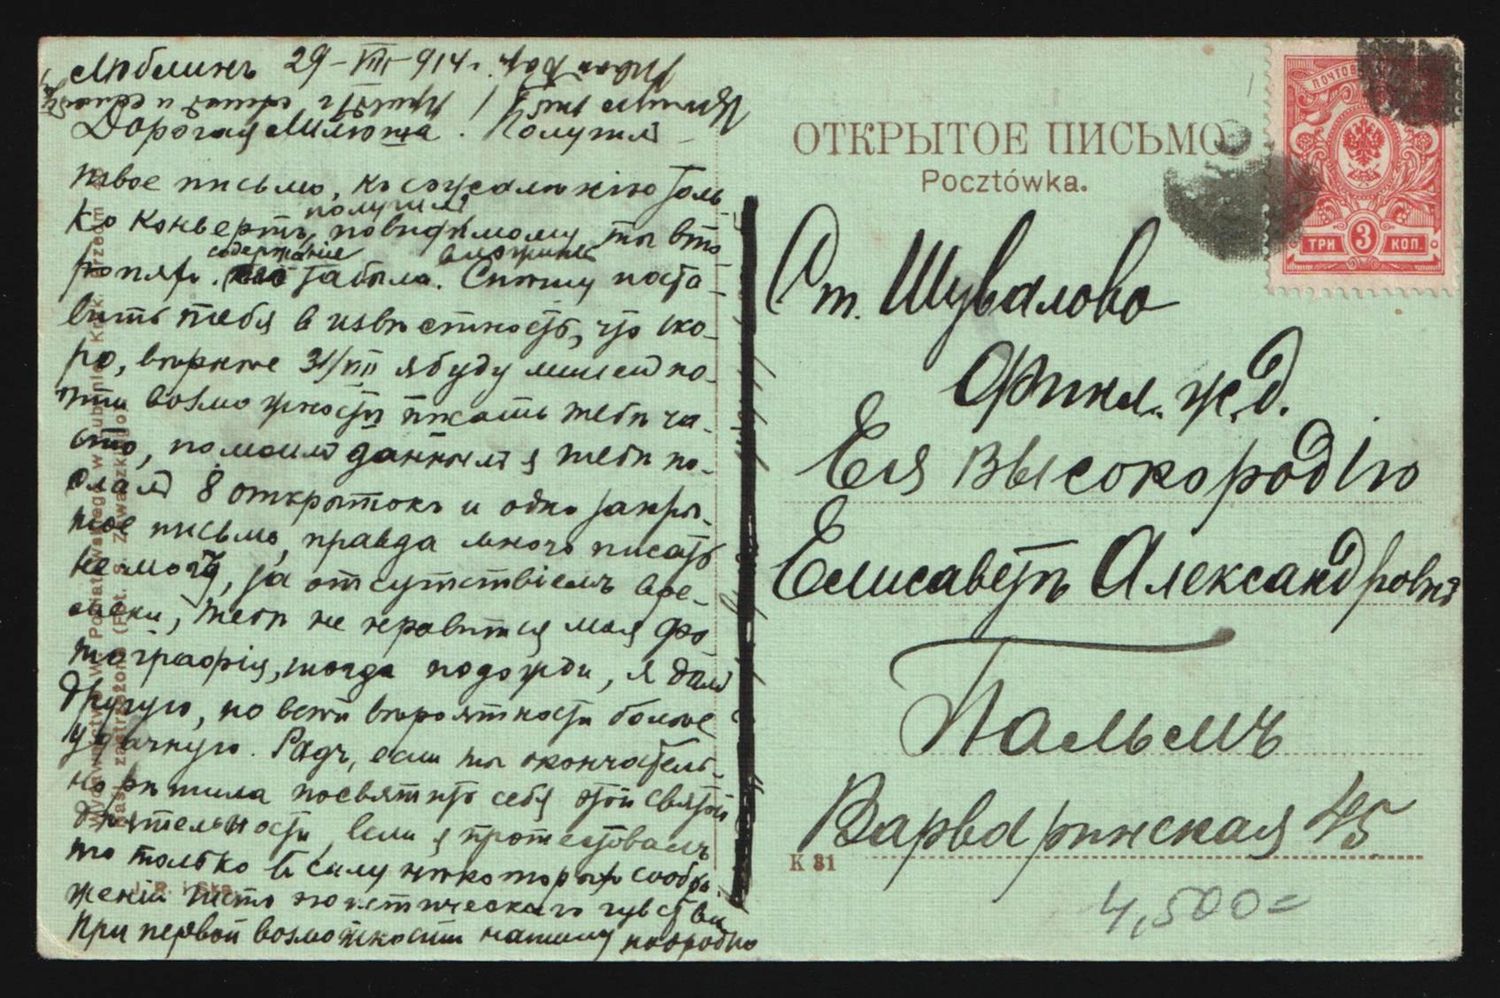 Люблинъ 29-VIII-914 г.
Дорогая Милюша. Получилъ
твое письмо, къ сожалѣнію толь-
ко конвертъ получилъ, повидимому ты вто-
ропяхъ содержание вложить забыла. Спѣшу поста-
вить тебя в извѣстность, что ско-
ро, вѣрнѣе 31/VIII я буду лишенъ по-
чти возможности писать тебѣ ча-
сто, по моимъ даннымъ я тебѣ по-
слалъ 8 открытокъ и одно закры-
тое письмо, правда много писать
не могу, за отсутствіемъ вре-
мени, тебѣ не нравится моя фо-
тографія, тогда подожди, я далъ
другую, по всей вѣроятности болѣе
удачную. Радъ, если ты окончатель-
но рѣшила посвятить себя этой святой
дѣятельности, если я протестовалъ
то только в силу нѣкоторыхъ сообра-
женій чисто эгоистическаго чувства
При первой возможности напишу подробно
ОТКРЫТОЕ ПИСЬМО
Pocztówka.
ПОЧТОВ
ТРИ 3 КОП.
Ст. Шувалово
Финл. ж. д.
Ея Высокородію
Елисаветѣ Александровнѣ
Пальмъ
Варваринская 45
K 31
4,500=